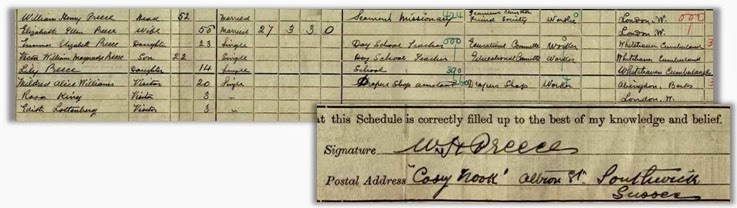 William Henry Preece Head 52 Married Seamens Missionary Seamens Christian Friend Society Worker London. W.
Elizabeth Ellen Preece Wife 50 Married 27 3 3 0 London. W.
Elizabeth Preece Daughter 23 Single Day School Teacher Educational Committee Worker Whitehaven Cumberland
William Preece Son 22 Single Day School Teacher Educational Committee Worker Whitehaven Cumberland
Lily Preece Daughter 14 Single School Whitehaven Cumberland
Mildred Alice Williams Visitor 20 Single Drapers Shop Drapers Shop Worker Abingdon, Berks
King Visitor 3 " London. W.
Edith Lottenberg Visitor 3 "
at this Schedule is correctly filled up to the best of my knowledge and belief.
Signature W H Preece
Postal Address "Cosy Nook" Albion St. Southwick
Sussex